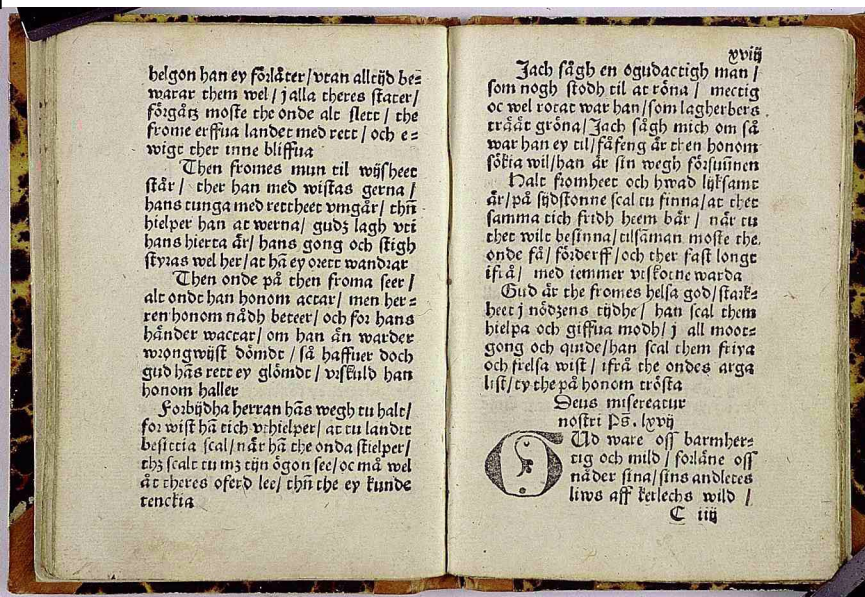 helgon han ey förlåter/vtan alltijd be⸗
warar them wel/ j alla theres stater/
förgåtz moste the onde alt slett/ the
frome erffua landet med rett/ och e⸗
wigt ther inne bliffua
Then fromes mun til wijsheet
står/ ther han med wistas gerna/
hans tunga med rettheet vmgår/ thn̄
hielper han at werna/ gudz lagh vti
hans hierta är/ hans gong och stigh
styras wel her/ at hā ey orett wandrar
Then onde på then froma seer/
alt ondt han honom actar/ men her⸗
ren honom nådh beteer/ och for hans
händer wactar/ om han än warder
wrongwijst dömdt/ så haffuer doch
gud hās rett ey glömdt/ vtskuld han
honom haller
Forbijdha herran hās wegh tu halt/
for wist hā tich vthielper/ at tu landit
besittia scal/ när hā the onda stielper/
thz scalt tu mz tijn ögon see/ oc må wel
åt theres oferd lee/ thn̄ the ey kunde
tenckia
xviij
Jach sågh en ogudactigh man/
som nogh stodh til at röna/ mectig
oc wel rotat war han/ som lagherbers
träät gröna/ Jach sågh mich om så
war han ey til/ fåfeng är then honom
sökia wil/ han är sin wegh försuūnen
Halt fromheet och hwad lijksamt
är/ på sijdstonne scal tu finna/ at thet
samma tich fridh heem bär/ når tu
thet wilt besinna/ tilsāman moste the
onde få/ förderff/ och ther fast longt
ifrå/ med iemmer vtskotne warda
Gud är the fromes helsa god/ stark⸗
heet j nödzens tijdhe/ han scal them
hielpa och giffua modh/ j all moot⸗
gong och quide/ han scal them friya
och frelsa wist/ ifrå the ondes arga
list/ ty the på honom trösta
Deus misereatur
nostri Ps̄. lxvij
GUd ware oss barmher⸗
tig och mild/ forläne oss
nåder sina/ sins andletes
liws aff ketlechs wild/
C iiij